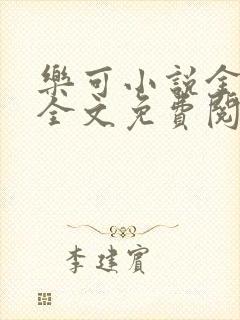 樂可小說全
全文免費閱
李建賓